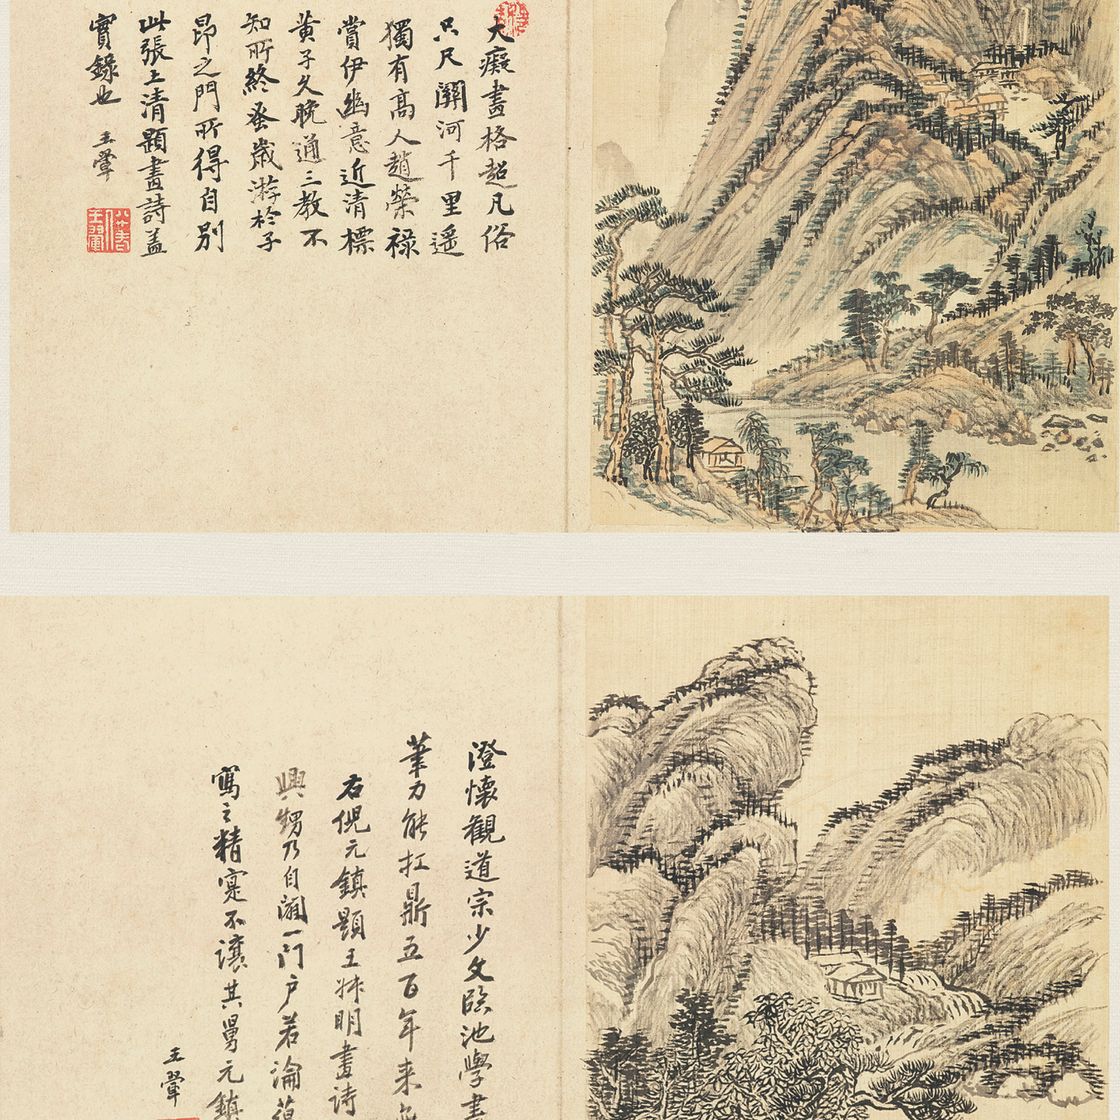 大癡畫格超凡俗
只尺關河千里遥
獨有高人趙榮禄
賞伊幽意近清標
黃子久晚通三教不
知所終蚤歲游於子
昂之門所得自別
此張上清題畫詩蓋
實錄也 王翬
澄懷觀道宗少文臨池學書
筆力能扛鼎五百年來
右倪元鎮題王叔明畫詩
興甥乃自闢一門戶若論
寫之精寔不讓其舅元鎮
王翬